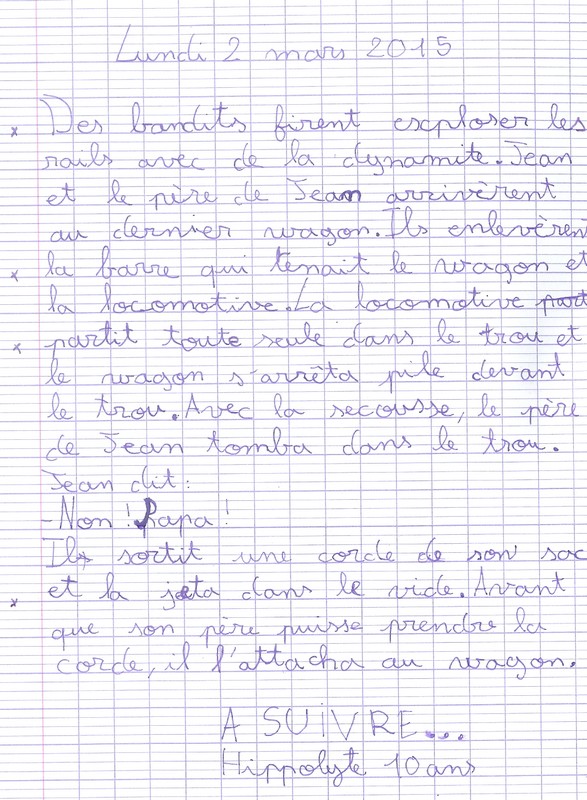 Lundi 2 mars 2015
x Des bandits firent exploser les
rails avec de la dynamite. Jean
et le père de Jean arrivèrent
au dernier wagon. Ils enlevèren
x la barre qui tenait le wagon et
la locomotive. La locomotive part
x partit toute seule dans le trou et
le wagon s'arrêta pile devant
le trou. Avec la secousse, le père
de Jean tomba dans le trou.
Jean dit :
- Non ! Papa !
Il sortit une corde de son sac
x et la jeta dans le vide. Avant
que son père puisse prendre la
corde, il l'attacha au wagon.
A SUiVRE...
Hippolyte 10 ans